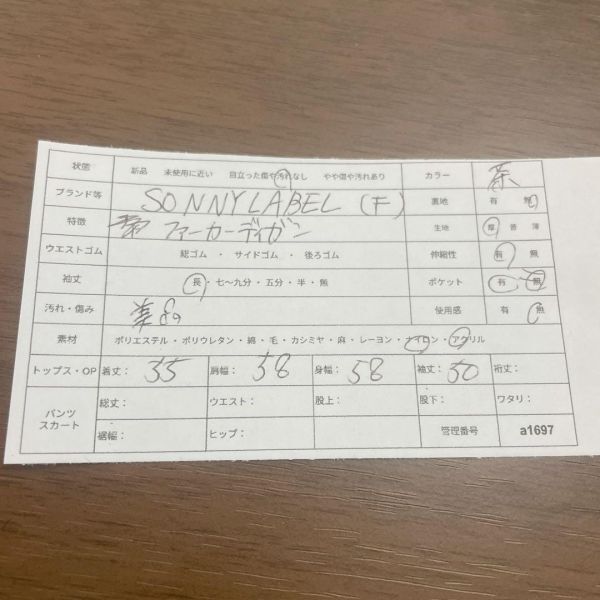 状態 新品 未使用に近い 目立った傷や汚れなし やや傷や汚れあり カラー 茶
ブランド等 SONNY LABEL (F) 裏地 有 無
特徴 ファーカーディガン 生地 厚 普 薄
ウエストゴム 総ゴム ・ サイドゴム ・ 後ろゴム 伸縮性 有 無
袖丈 長 ・ 七～九分 ・ 五分 ・ 半 ・ 無 ポケット 有 無
汚れ・傷み 美品 使用感 有 無
素材 ポリエステル ・ ポリウレタン ・ 綿 ・ 毛 ・ カシミヤ ・ 麻 ・ レーヨン ・ ナイロン ・ アクリル
トップス・OP 着丈： 55 肩幅： 58 身幅： 58 袖丈： 50 裄丈：
パンツ スカート 総丈： ウエスト： 股上： 股下： ワタリ：
裾幅： ヒップ： 管理番号 a1697